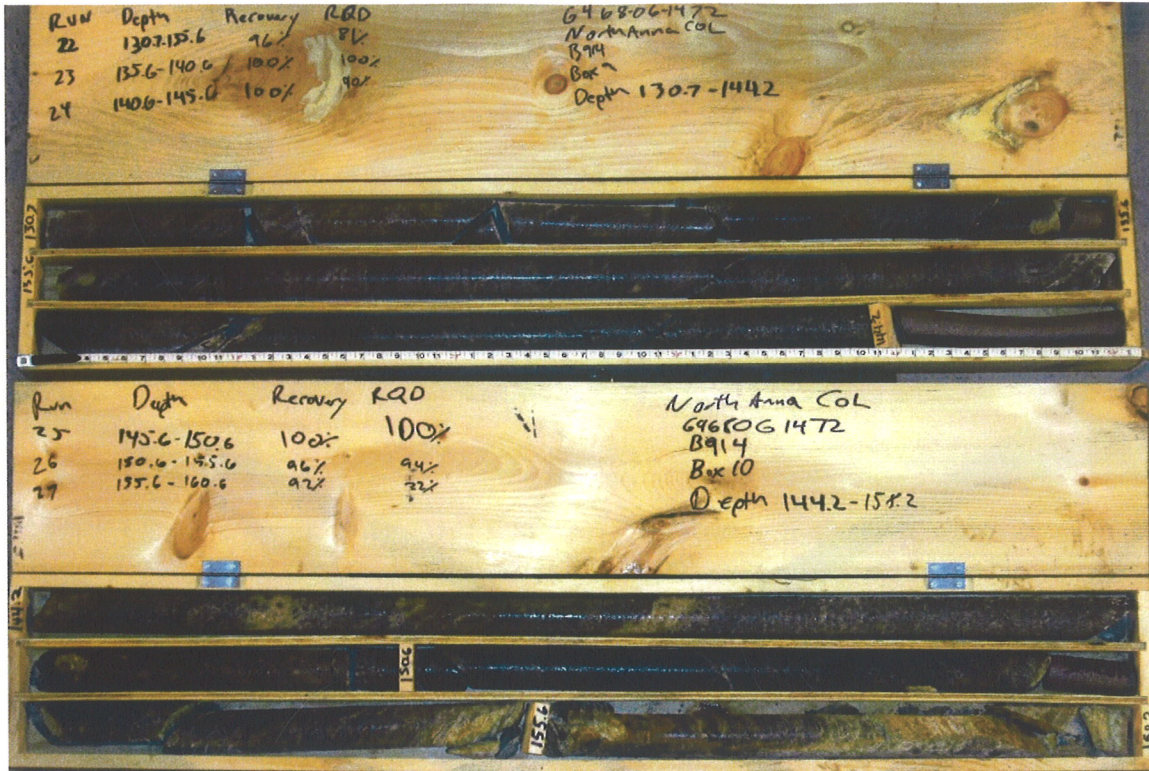 RUN Depth Recovery RQD
22 130.7-135.6 96% 81%
23 135.6-140.6 100% 100%
24 140.6-145.6 100% 90%
6468-06-1472
North Anna COL
B914
Box 9
Depth 130.7-144.2
130.7
135.6
135.6
144.2
Run Depth Recovery RQD
25 145.6-150.6 100% 100%
26 150.6-155.6 96% 94%
27 155.6-160.6 92% 22%
North Anna COL
6468061472
B914
Box 10
Depth 144.2-158.2
144.2
150.6
155.6
158.2